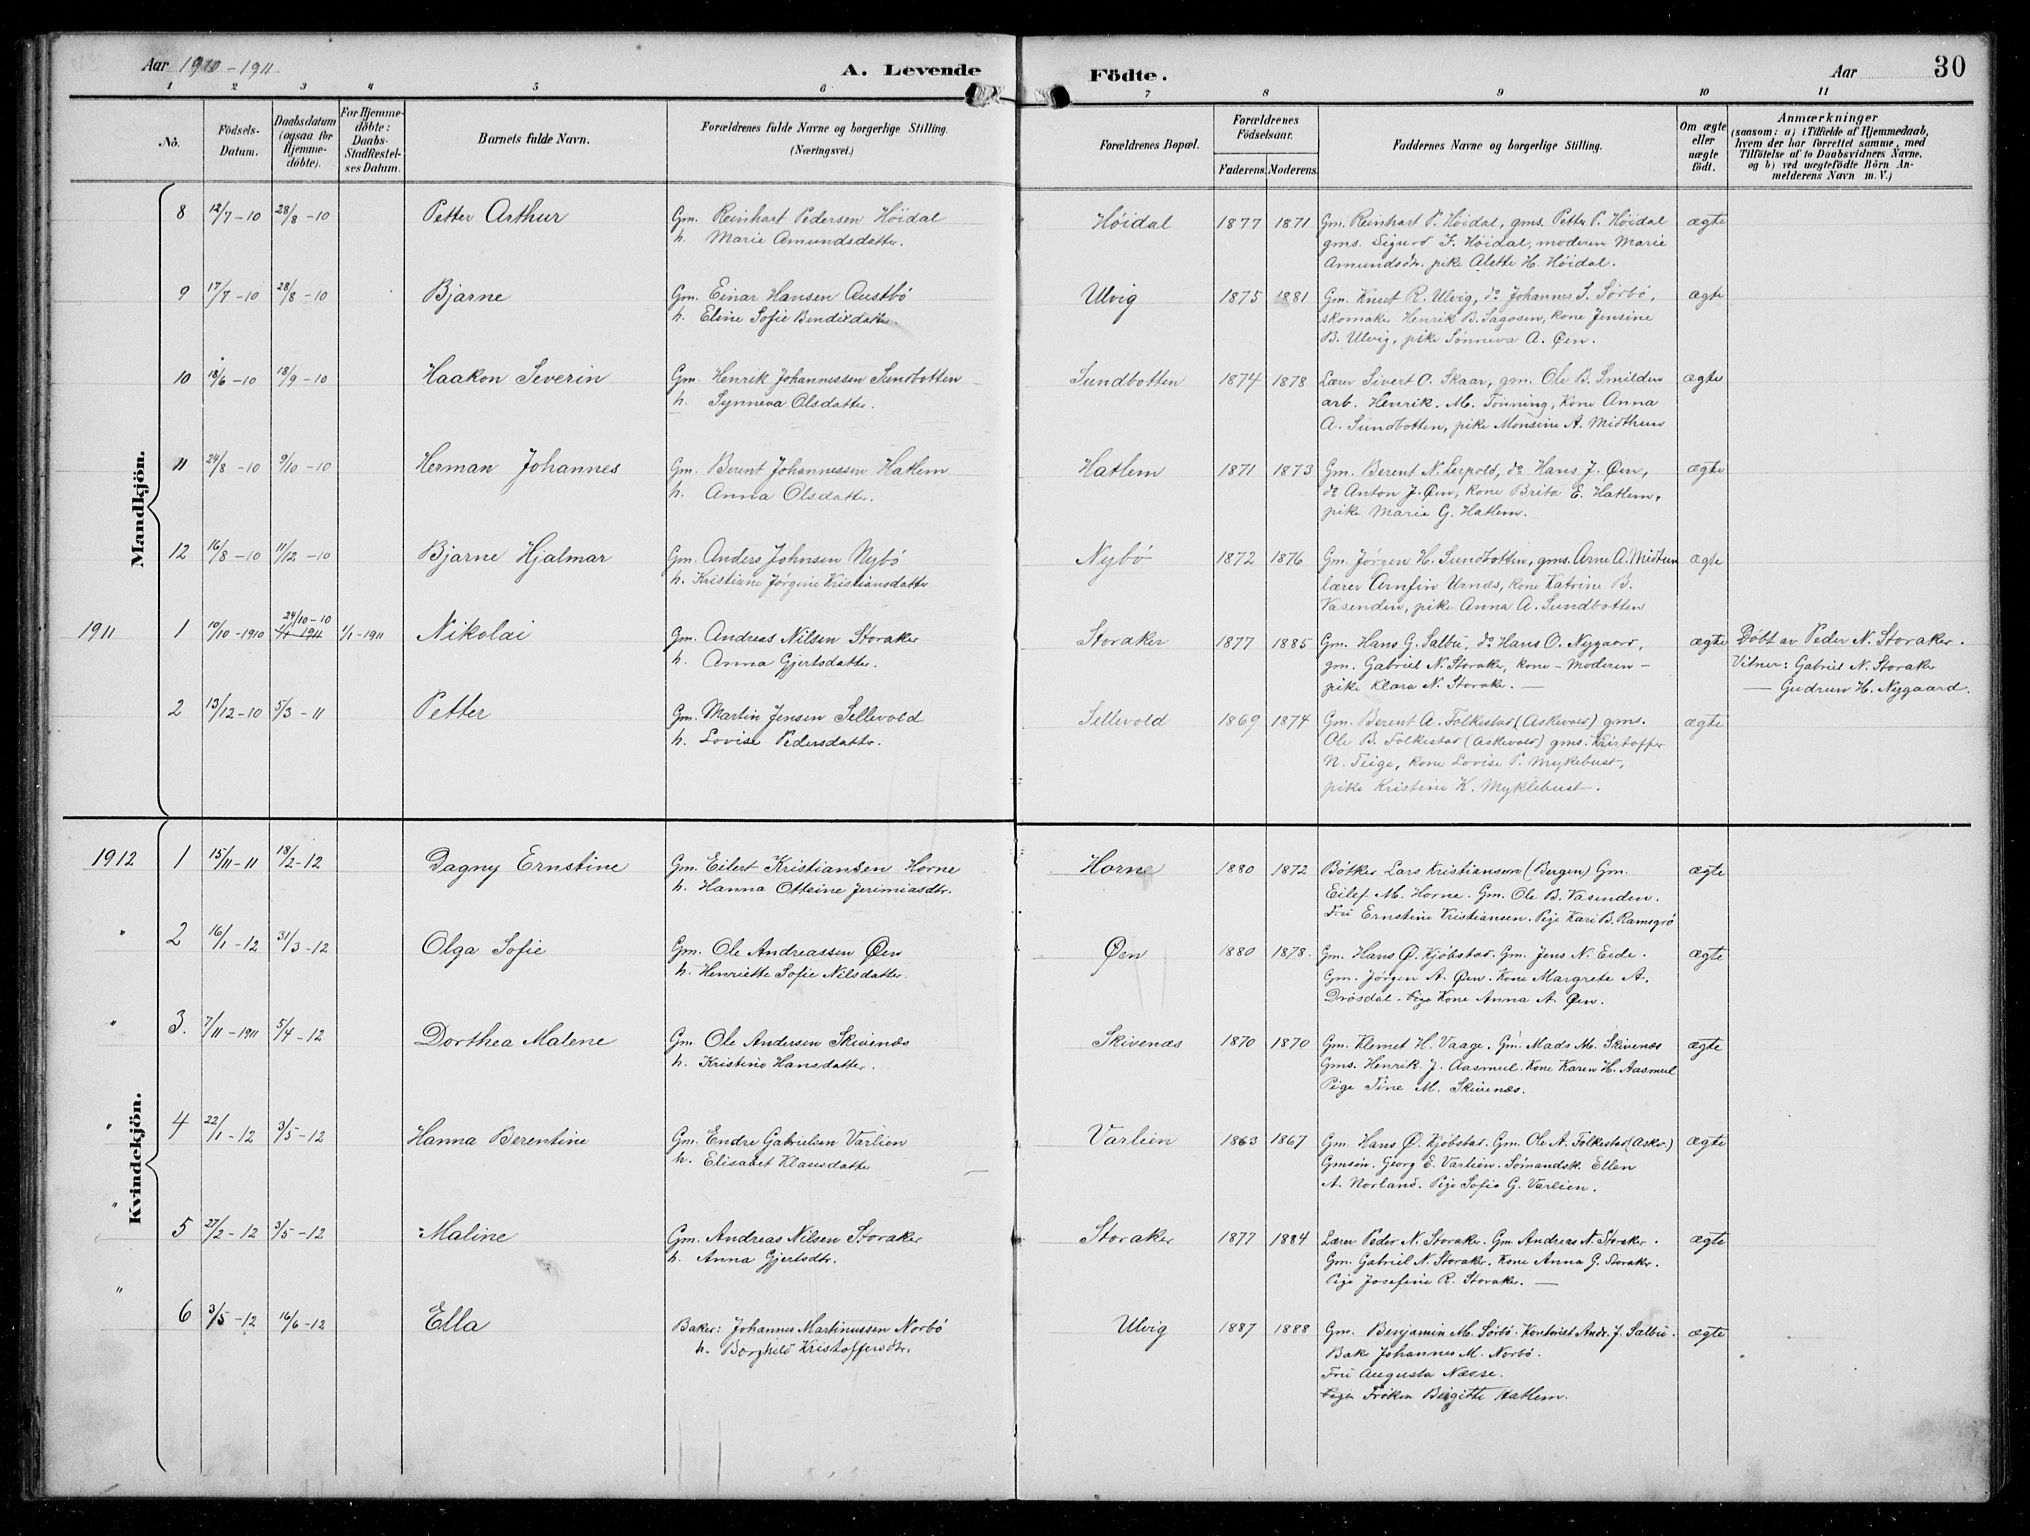 Aar 1910-1911.
A. Levende Födte.
Aar
30
1 2 3 4 5 6 7 8 9 10 11
No.
Födsels-Datum.
Daabsdatum (ogsaa for Hjemme-döbte).
For Hjemme-döbte: Daabs-Stadfestel-ses Datum.
Barnets fulde Navn.
Forældrenes fulde Navne og borgerlige Stilling. (Næringsvei.)
Forældrenes Bopæl.
Forældrenes Födselsaar.
Faderens. Moderens.
Faddernes Navne og borgerlige Stilling.
Om ægte eller uægte födt.
Anmærkninger
(saasom: a) i Tilfælde af Hjemmedaab,
hvem der har forrettet samme, med
Tilföielse af to Daabsvidners Navne,
og b) ved uægtefödte Börn An-
melderens Navn m. V.)
Mandkjön.
8 12/7-10 28/8-10 Petter Arthur Gm. Reinhart Pedersen Höidal Höidal 1877 1871 Gm Reinhart P. Höidal, gms. Petter P. Höidal ægte
h. Marie Amundsdatter. gms. Sigurd J. Höidal, moderen Marie
Amundsdr. pike Alette H. Höidal.
9 17/7-10 28/8-10 Bjarne Gm. Einar Hansen Austbö Ulvig 1875 1881 Gm. Knut R. Ulvig, do Johannes S. Sørbø, ægte
h. Eline Sofie Bendixdatter. skomaker Henrik B. Sagosen, kone Jensine
B. Ulvig, pike Sønneva A. Øen.
10 18/6-10 18/9-10 Haakon Severin Gm. Henrik Johannessen Sundbotten Sundbotten 1874 1878 Lærer Sivert O. Skaar, gm. Ole B. Smilden ægte
h. Synneva Olsdatter. arb. Henrik. M. Tönning, kone Anna
A. Sundbotten, pike Monsine A. Midthun
11 24/8-10 9/10-10 Herman Johannes Gm. Berent Johannessen Hatlem Hatlem 1871 1873 Gm. Berent N. Leipold, do Hans J. Øen, ægte
h. Anna Olsdatter. do Anton J. Øen, kone Brita E. Hatlem,
pike Marie G. Hatlem.
12 16/8-10 11/12-10 Bjarne Hjalmar Gm. Anders Johnsen Nybö Nybø 1872 1876 Gm. Jørgen H. Sundbotten, gms. Arne A. Midtun ægte
h. Kristiane Jørgine Kristiansdatter lærer Arnfin Urnæs, kone Katrine B.
Vasenden, pike Anna A. Sundbotten
24/10-10
1911 1 10/10-1910 1/1-1911 1/1-1911 Nikolai Gm. Andreas Nilsen Storaker Storaker 1877 1885 Gm. Hans G. Salbu, do Hans O. Nygaard, ægte Döbt av Peder N. Storaker.
h. Anna Gjertsdatter. gm. Gabriel N. Storaker, kone - Moderen - Vitner: Gabriel N. Storaker
pike Klara N. Storaker. — — Gudrun H. Nygaard.
2 13/12-10 5/3-11 Petter Gm. Martin Jensen Sellevold Sellevold 1869 1874 Gm. Berent A. Folkestad (Askevold) gms. ægte
h. Lovise Pedersdatter. Ole B. Folkestad (Askevold) gms. Kristoffer
N. Teige, kone Lovise P. Myklebust,
pike Kristine K. Myklebust.
Kvindekjön.
1912 1 15/11-11 18/2-12 Dagny Ernstine Gm. Eilert Kristiansen Horne Horne 1880 1872 Bötker Lars Kristiansen (Bergen) Gm. ægte
h. Hanna Otteine Jerimiasdtr. Eilef M. Horne. Gm. Ole B. Vasenden.
Fru Ernstine Kristiansen. Pige Kari B. Ramsgrö
" 2 16/1-12 31/3-12 Olga Sofie Gm. Ole Andreassen Øen Øen 1880 1878. Gm. Hans Ø. Kjöbstad. Gm. Jens N. Eide. ægte
h. Henriette Sofie Nilsdatter. Gm. Jörgen A. Øen. Kone Margrete A.
Drösdal. Pige Kone Anna A. Øen.
" 3. 7/11-1911 5/4-12 Dorthea Malene Gm. Ole Andersen Skivenæs Skivenæs 1870 1870 Gm. Klemet H. Vaage. Gm. Mads M. Skivenæs ægte
h. Kristine Hansdatter. Gms. Henrik J. Aasmul. Kone Karen H. Aasmul
Pige Tine M. Skivenæs.
" 4 22/1-12 3/5-12 Hanna Berentine Gm. Endre Gabrielsen Varlien Varlien 1863 1867 Gm. Hans Ø. Kjöbstad. Gm. Ole A. Folkestad (Askv.) ægte
h. Elisabet Klausdatter Gmsøn. Georg E. Varlien. Sömandsk. Ellen
A. Norland. Pige Sofie G. Varlien.
" 5 27/2-12 3/5-12 Maline Gm. Andreas Nilsen Storaker Storaker 1877 1884 Lærer Peder N. Storaker. Gm Andreas N. Storaker. ægte
h. Anna Gjertsdtr. Gm. Gabriel N. Storaker. Kone Anna G. Storaker.
Pige Josefine R. Storaker. —
" 6 3/5-12 16/6-12 Ella Baker: Johannes Martinussen Norbö Ulvig 1887 1888 Gm. Benjamin M. Sörbö. Kontorist Andr. J. Salbu. ægte
h. Borghild Kristoffersdtr. Baker Johannes M. Norbö.
Fru Augusta Næsse.
Pige Fröken Birgitte Hatlem.